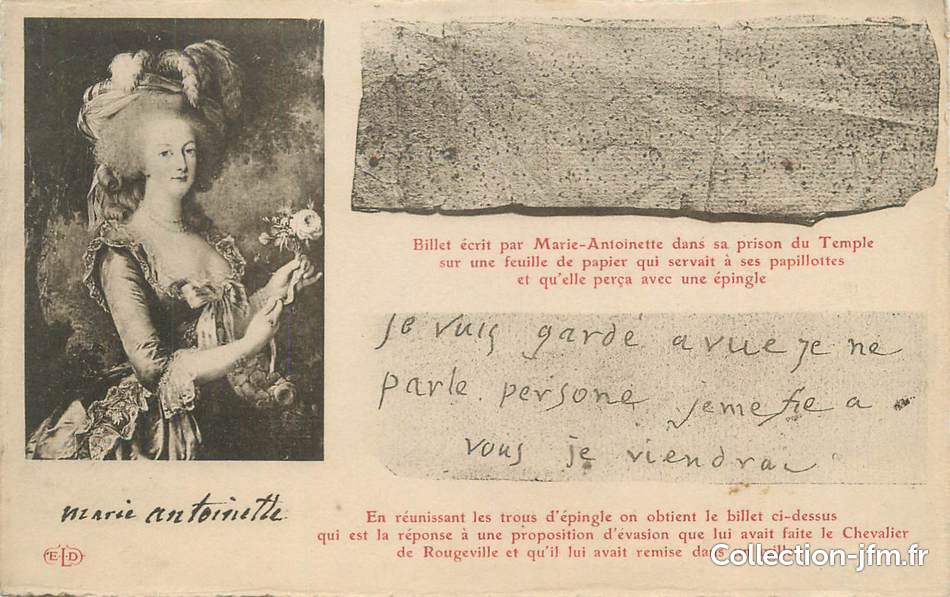 Billet écrit par Marie-Antoinette dans sa prison du Temple
sur une feuille de papier qui servait à ses papillottes
et qu'elle perça avec une épingle
je vuis gardé a vue je ne
parle persone jemefie a
vous je viendrai
marie antoinette
En réunissant les trous d'épingle on obtient le billet ci-dessus
qui est la réponse à une proposition d'évasion que lui avait faite le Chevalier
de Rougeville et qu'il lui avait remise dans
E.L.D
Collection-jfm.fr